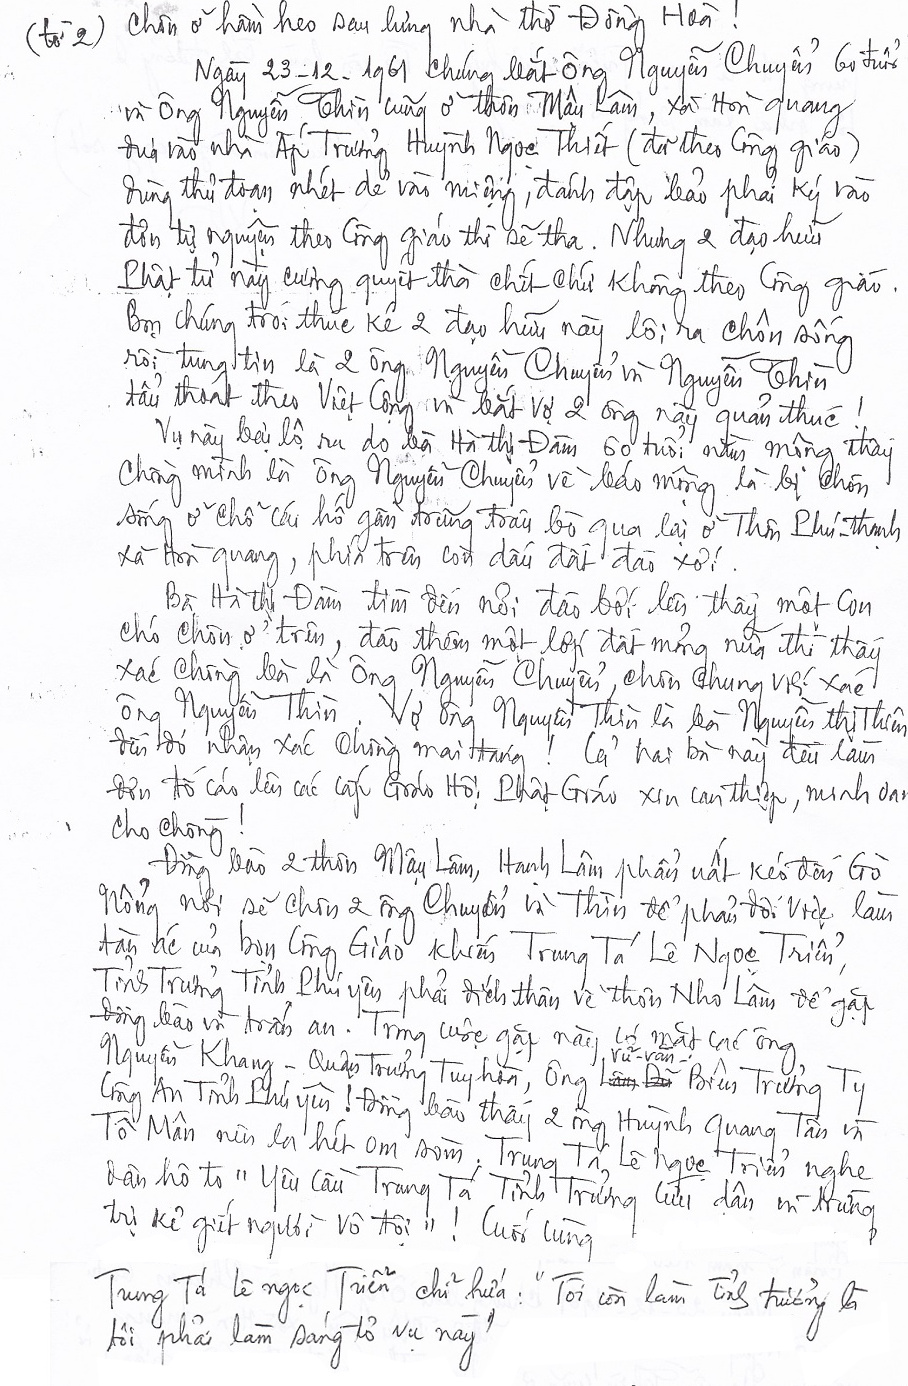 (tờ 2) Chôn ở hầm heo sau lưng nhà thờ Đông Hoà !
Ngày 23-12-1961 chúng bắt Ông Nguyễn Chuyển 60 tuổi
và Ông Nguyễn Thìn cũng ở thôn Mậu Lâm, xã Hoà quang
đưa vào nhà Ấp Trưởng Huỳnh Ngọc Thiết (đã theo Công giáo)
dùng thủ đoạn nhét dẻ vào miệng, đánh đập bảo phải ký vào
đơn tự nguyện theo Công giáo thì sẽ tha. Nhưng 2 đạo hữu
Phật tử này cương quyết thà chết chứ không theo Công giáo.
Bọn chúng trói thúc ké 2 đạo hữu này lôi ra chôn sống
rồi tung tin là 2 ông Nguyễn Chuyển và Nguyễn Thìn
tẩu thoát theo Việt Cộng và bắt vợ 2 ông này quản thúc !
Vụ này bại lộ ra do bà Hà thị Đàm 60 tuổi nằm mộng thấy
chồng mình là Ông Nguyễn Chuyển về báo mộng là bị chôn
sống ở chỗ cái hố gần đường trâu bò qua lại ở Thôn Phú-thạnh
xã Hoà quang, phía trên còn dấu đất đào xới.
Bà Hà thị Đàm tìm đến nơi đào bới lên thấy một con
chó chôn ở trên, đào thêm một lớp đất mỏng nữa thì thấy
xác chồng bà là Ông Nguyễn Chuyển, chôn chung với xác
Ông Nguyễn Thìn. Vợ ông Nguyễn Thìn là bà Nguyễn thị Thiên
đến đó nhận xác chồng mai táng ! Cả hai bà này đều làm
đơn tố cáo lên các cấp Giáo Hội Phật Giáo xin can thiệp, minh oan
cho chồng !
Đồng bào 2 thôn Mậu Lâm, Hạnh Lâm phẫn uất kéo đến Gò
Nổng nơi sẽ chôn 2 ông Chuyển và Thìn để phản đối việc làm
tàn ác của bọn Công Giáo khiến Trung Tá Lê Ngọc Triển,
Tỉnh Trưởng Tỉnh Phú yên phải đích thân về thôn Nho Lâm để gặp
đồng bào và trấn an. Trong cuộc gặp này có mặt các ông
Nguyễn Khang - Quận Trưởng Tuy hòa, Ông Biên Trưởng Ty
Công An Tỉnh Phú yên ! Đồng bào thấy 2 ông Huỳnh Quang Tấn và
Tô Mân nên la hét om sòm. Trung Tá Lê Ngọc Triển nghe
dân hô to "Yêu cầu Trung Tá Tỉnh Trưởng cứu dân và trừng
trị kẻ giết người vô tội" ! Cuối cùng
Trung Tá Lê ngọc Triển chỉ hứa : "Tôi còn làm tỉnh trưởng là
tôi phải làm sáng tỏ vụ này"